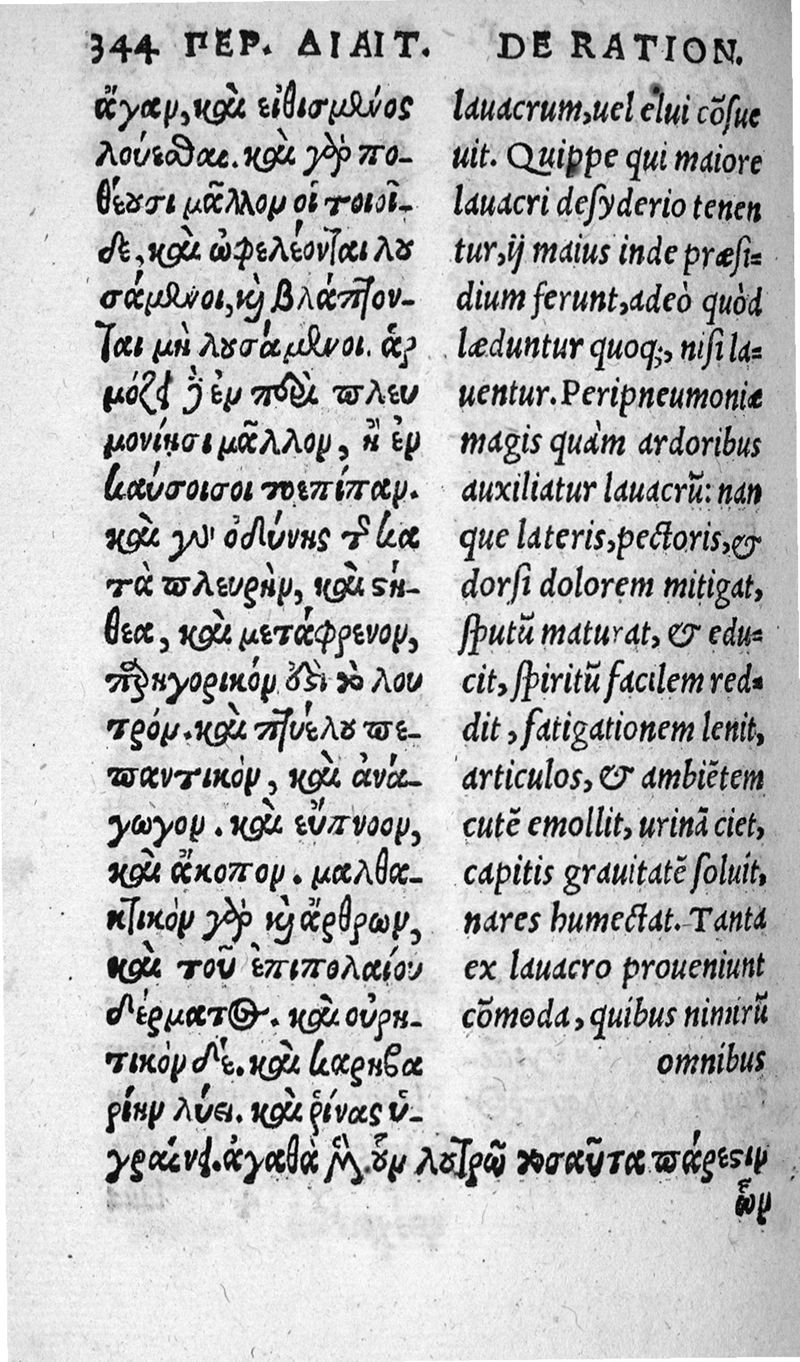 344 ΠΕΡ. ΔΙΑΙΤ. DE RATION.
ἄγαν, καὶ εἰθισμένος
λούεσθαι. καὶ γὰρ πο-
θέουσι μᾶλλον οἱ τοιοί-
δε, καὶ ὠφελέονται λου
σάμενοι, καὶ βλάπτον-
ται μὴ λουσάμενοι. ἁρ
μόζει δὲ ἐν πλευ
μονίῃσι μᾶλλον, ἢ ἐν
καύσοισι τοεπίπαν.
καὶ γὰρ ὀδύνης τῆς κα
τὰ πλευρὴν, καὶ στή-
θεα, καὶ μετάφρενον,
παρηγορικόν ἐστὶ λου
τρόν. καὶ πτυέλου πε-
παντικὸν, καὶ ἀνά-
γωγον. καὶ εὔπνοον,
καὶ ἄκοπον. μαλθα-
κτικὸν γὰρ καὶ ἄρθρων,
καὶ τοῦ ἐπιπολαίου
δέρματος. καὶ οὐρη-
τικὸν δέ. καὶ καρηβα
ρίην λύει. καὶ ῥῖνας ὑ-
γραίνει. ἀγαθὰ μὲν οὖν λουτρῷ τοσαῦτα πάρεστιν
ὧν
lauacrum, uel elui cõsue
uit. Quippe qui maiore
lauacri desyderio tenen
tur, ij maius inde præsi-
dium ferunt, adeò quòd
læduntur quoq;, nisi la-
uentur. Peripneumoniæ
magis quàm ardoribus
auxiliatur lauacrũ: nan
que lateris, pectoris, &
dorsi dolorem mitigat,
sputũ maturat, & edu-
cit, spiritũ facilem red-
dit, fatigationem lenit,
articulos, & ambiẽtem
cutẽ emollit, urinã ciet,
capitis grauitatẽ soluit,
nares humectat. Tanta
ex lauacro proueniunt
cõmoda, quibus nimirũ
omnibus